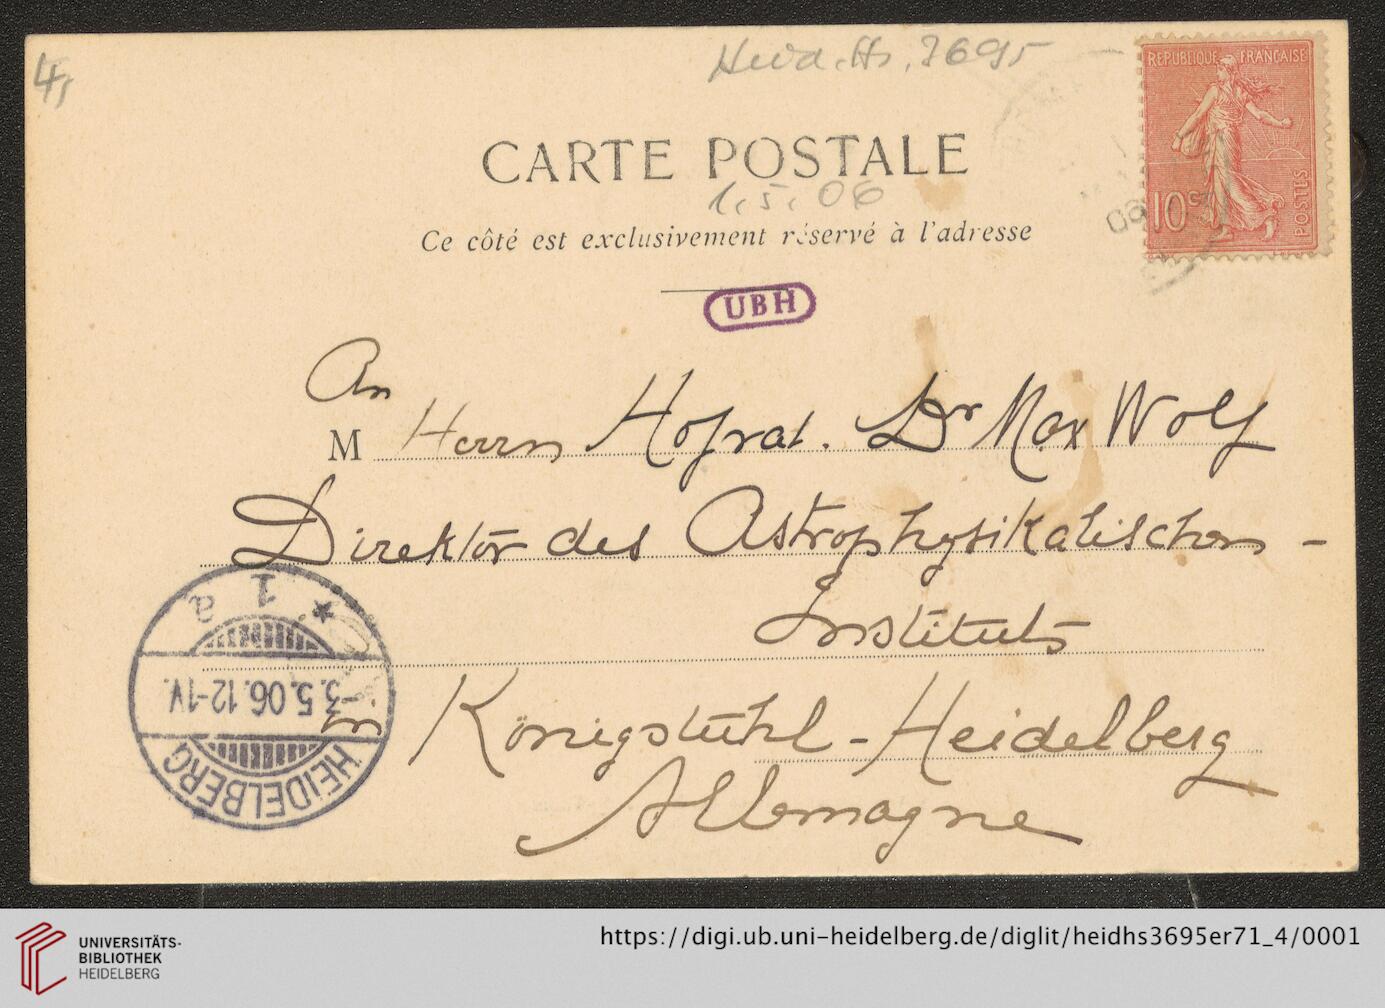 4,
Heid. Hs. 3695
REPUBLIQUE FRANÇAISE
10 c
POSTES
CARTE POSTALE
1. 5. 06
Ce côté est exclusivement réservé à l'adresse
UBH
An
M Herrn Hofrat. Dr Max Wolf
Direktor des Astrophysikalischen -
Instituts
in Königstuhl - Heidelberg
Allemagne
HEIDELBERG
-3.5.06.12-1V.
* 1 a
UNIVERSITÄTS-
BIBLIOTHEK
HEIDELBERG
https://digi.ub.uni-heidelberg.de/diglit/heidhs3695er71_4/0001